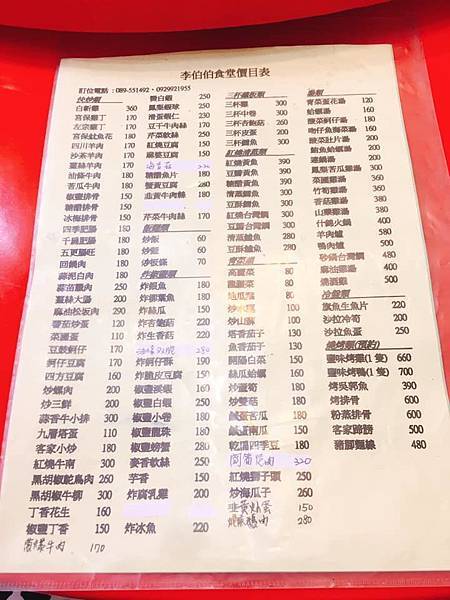 李伯伯食堂價目表
訂位電話：089-551492、0929921955
快炒類
白斬雞 360
宮保雞丁 170
左宗雞丁 170
宮保魷魚花 180
四川羊肉 170
沙茶羊肉 170
170
油條牛肉 180
苦瓜牛肉 180
椒鹽排骨 180
糖醋排骨 180
冰梅排骨 180
四季肥腸 180
千鍋肥腸 180
五更腸旺 180
回鍋肉 180
蒜泥白肉 180
蒜苗鹹肉 250
薑絲大腸 200
麻油松板肉 290
蕃茄炒蛋 120
菜圃蛋 110
豆鼓蚵仔 170
蚵仔豆腐 170
四方豆腐 160
炒螺肉 200
炒三鮮 200
蒜香牛小排 300
九層塔蛋 110
客家小炒 180
紅燒牛腩 300
黑胡椒鴕鳥肉 260
黑胡椒牛柳 300
丁香花生 160
椒鹽丁香 150
蔥爆牛肉 170
醬白蝦 250
鳳梨蝦球 250
滑蛋蝦仁 230
芹菜軟絲 250
豆干牛肉絲 170
紅燒豆腐 150
麻婆豆腐 150
糖醋魚片 200
蟹黃豆腐 280
韭黃牛肉絲 180
芹菜牛肉絲 170
飯麵類
炒飯 60
炒麵 60
炒板條 70
炸椒鹽類
炸蝦魚 200
炸柳葉魚 200
炸絲瓜 150
炸杏鮑菇 220
炸生香菇 220
280
炸蚵仔酥 180
炸脆皮豆腐 150
椒鹽溪蝦 160
椒鹽白蝦 250
椒鹽小卷 180
椒鹽龍珠 180
椒鹽螃蟹 280
麥香軟絲 250
芋香 150
炸腐乳雞 200
炸冰魚 220
三杯鐵板類
三杯雞 300
三杯中卷 300
三杯杏鮑菇 260
三杯皮蛋 200
三杯鱷魚 300
紅燒清蒸類
紅燒黃魚 390
豆瓣黃魚 390
糖醋黃魚 390
豆豉黃魚 390
紅燒台灣鯛 300
豆醬台灣鯛 300
清蒸鱸魚 280
豆酥鱸魚 280
青菜類
高麗菜 80
龍鬚菜 80
地瓜葉 80
炒水蓮 100
炒山蘇 100
塔香茄子 130
魚香茄子 130
開陽白菜 150
絲瓜蛤蠣 160
炒蘆筍 180
炒雙菇 180
鹹蛋苦瓜 180
鹹蛋南瓜 150
乾隔四季豆 180
320
紅燒獅子頭 250
炒海瓜子 260
韭黃炒蛋 150
280
湯類
青菜蛋花湯 120
蛤蠣湯 160
酸菜蚵仔湯 180
吻仔魚海菜湯 180
酸菜肚片湯 200
鮑魚蛤蠣湯 200
連鍋湯 200
鳳梨苦瓜雞湯 300
菜圃雞湯 350
竹筍雞湯 350
香菇雞湯 350
山藥雞湯 350
什錦火鍋 400
羊肉爐 500
鴨肉爐 500
砂鍋台灣鯛 400
麻油雞湯 480
燒酒雞 500
冷盤類
旗魚生魚片 220
沙拉冷筍 200
沙拉魚蛋 250
燒烤類(預約)
鹽味烤雞(1隻) 660
鹽味烤鴨(1隻) 700
烤吳郭魚 390
烤排骨 400
粉蒸排骨 400
客家蹄膀 500
豬腳麵線 480